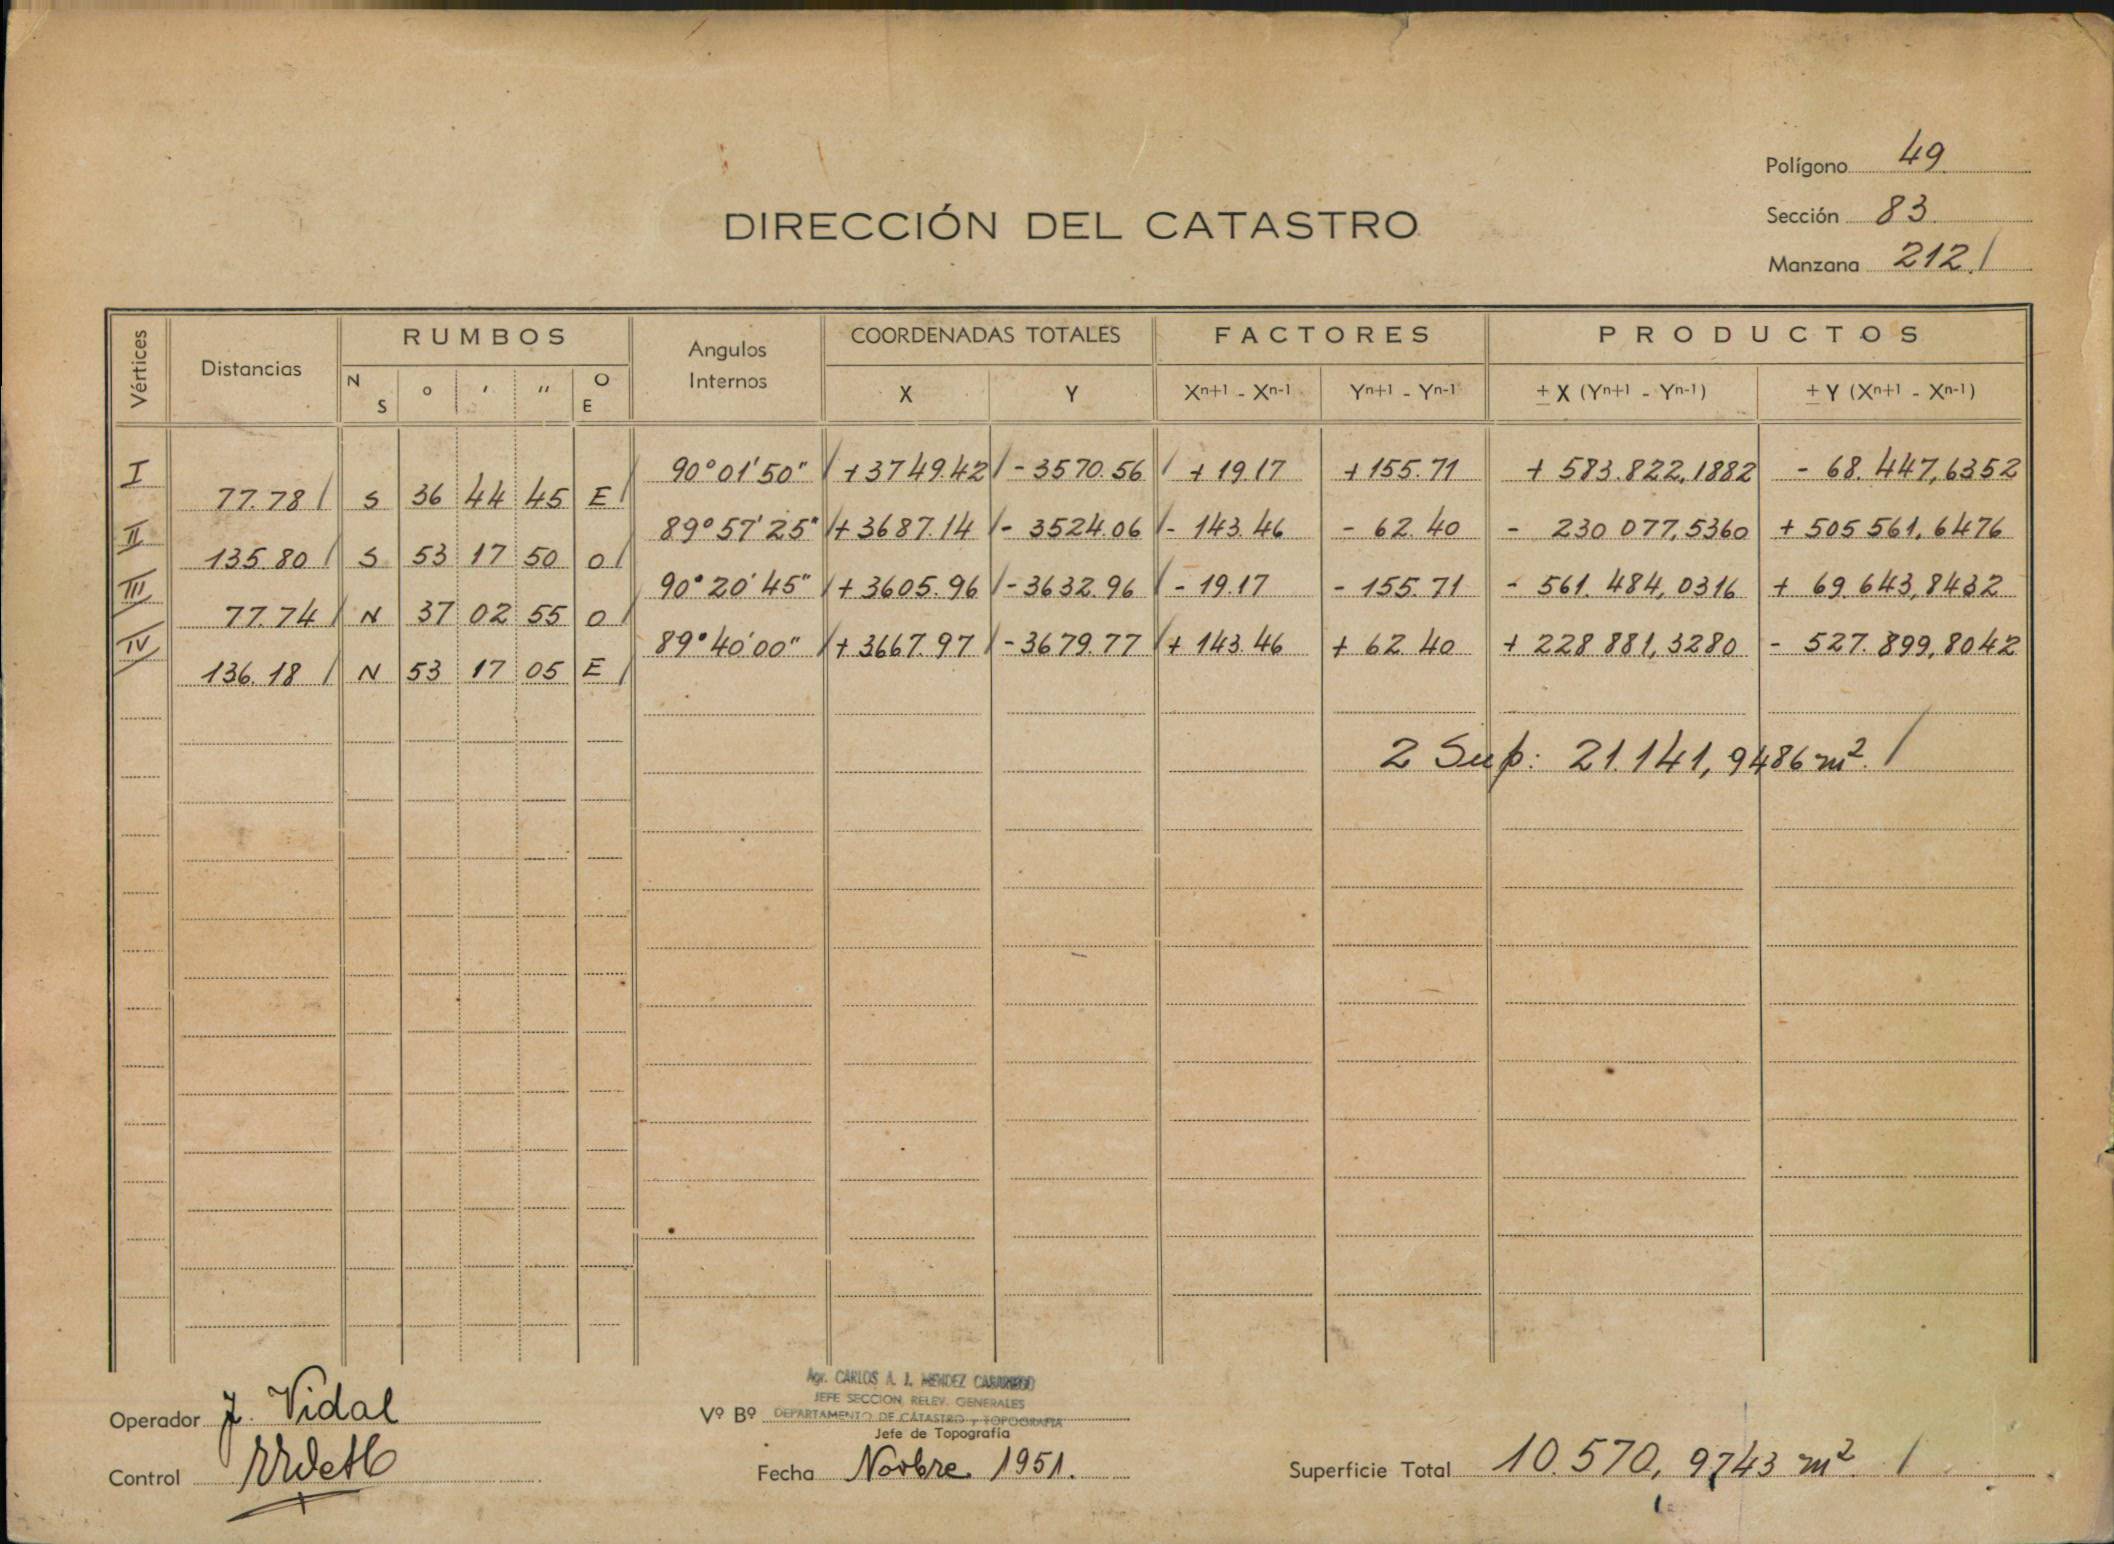 Polígono 49
DIRECCIÓN DEL CATASTRO
Sección 83.
Manzana 212. /
Vértices Distancias RUMBOS Angulos Internos COORDENADAS TOTALES FACTORES PRODUCTOS
N S ° ' " O E X Y Xn+1 - Xn-1 Yn+1 - Yn-1 ± X (Yn+1 - Yn-1) ± Y (Xn+1 - Xn-1)
I 90° 01' 50" / + 3749.42 / - 3570.56 / + 19.17 + 155.71 + 583.822,1882 - 68.447,6352
77.78 / S 36 44 45 E /
II 89° 57' 25" / + 3687.14 / - 3524.06 / - 143.46 - 62.40 - 230 077,5360 + 505 561,6476
135.80 / S 53 17 50 O /
III 90° 20' 45" / + 3605.96 / - 3632.96 / - 19.17 - 155.71 - 561.484,0316 + 69.643,8432
77.74 / N 37 02 55 O /
IV 89° 40' 00" / + 3667.97 / - 3679.77 / + 143.46 + 62.40 + 228 881,3280 - 527.899,8042
136.18 / N 53 17 05 E /
2 Sup: 21.141,9486 m². /
Agr. CARLOS A. J. MENDEZ CASARIEGO
JEFE SECCION RELEV. GENERALES
Operador J. Vidal Vº Bº DEPARTAMENTO DE CATASTRO y TOPOGRAFIA
Jefe de Topografía
Control Fecha Novbre 1951. Superficie Total 10.570,9743 m². /